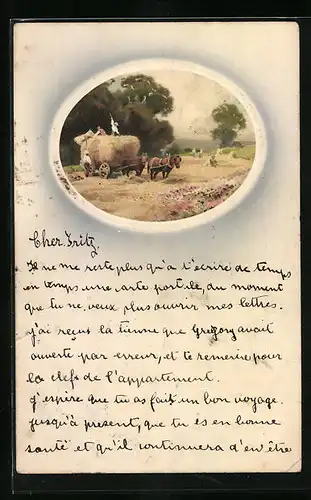 Cher Fritz,
Il ne me reste plus qu'à t'écrire de temps
en temps une carte postale, du moment
que tu ne veux plus ouvrir mes lettres.
J'ai reçus la tienne que Gregory avait
ouverte par erreur, et te remercie pour
la clefs de l'appartement.
J'espère que tu as fait un bon voyage.
jusqu'à présent, que tu es en bonne
santé et qu'il continuera d'en être